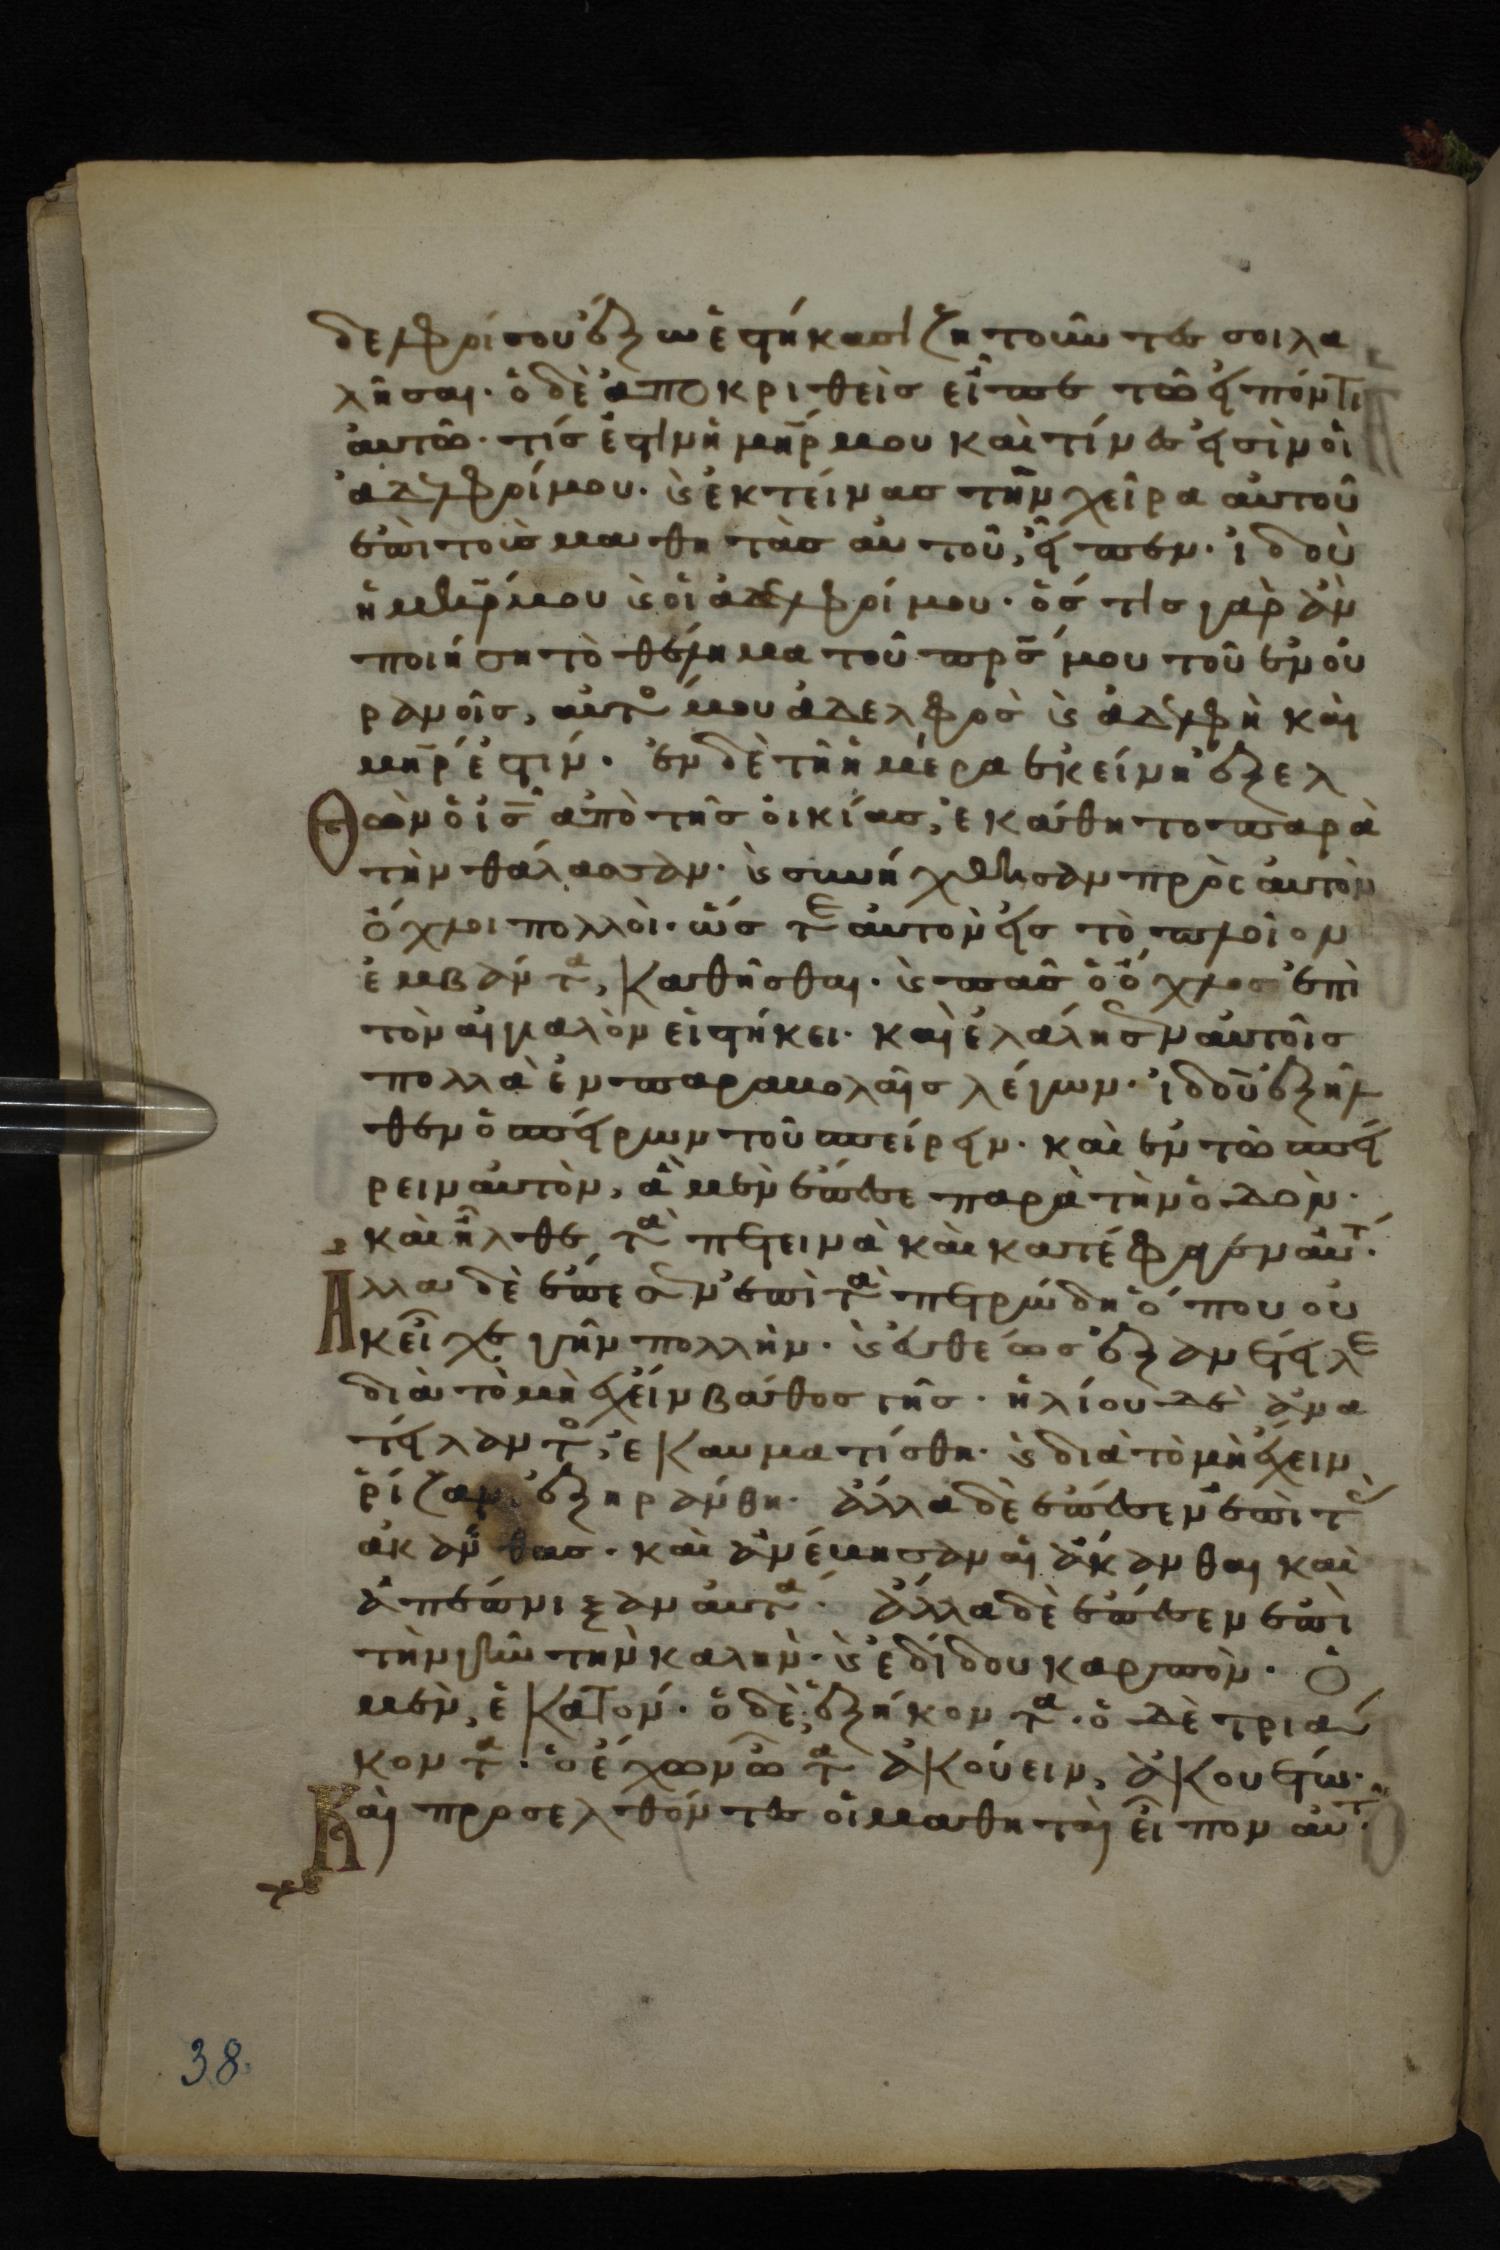 δελφοί σου ἔξω ἑστήκασι ζητοῦντες σοι λα
λῆσαι. ὁ δὲ ἀποκριθεὶς εἶπε τῶ εἰπόντι
αὐτῶ. τίς ἐστι μὴ μη̅ρ μου καὶ τίνες εἰσὶν οἱ
ἀδελφοί μου. κ̀ ἐκτείνας τὴν χεῖρα αὐτοῦ
ἐπὶ τοὺς μαθητὰς αὐτοῦ, εἶπεν. ἰδοὺ
ἡ μη̅ρ μου κ̀ οἱ ἀδελφοί μου. ὅς τις γὰρ ἂν
ποιήση τὸ θέλημα τοῦ πρ̅ς μου τοῦ ἐν οὐ
ρανοῖς, αὐτός μου ἀδελφὸς κ̀ ἀδελφὴ καὶ
μη̅ρ ἐστίν. ἐν δὲ τῆ ἡμέρα ἐκείνη ἐξελ
θὼν ὁ ἰ̅ς ἀπὸ τῆς οἰκίας, ἐκάθητο παρὰ
τὴν θάλασσαν. κ̀ συνήχθησαν πρὸς αὐτὸν
ὄχλοι πολλοὶ. ὥς τε αὐτὸν εἰς τὸ πλοῖον
ἐμβάντα, καθῆσθαι. κ̀ πᾶς ὁ ὄχλος ἐπὶ
τὸν αἰγιαλὸν εἱστήκει. καὶ ἐλάλησεν αὐτοῖς
πολλὰ ἐν παραβολαῖς λέγων. ἰδοὺ ἐξῆλ
θεν ὁ σπείρων τοῦ σπείρειν. καὶ ἐν τῶ σπεί
ρειν αὐτὸν, ἃ μὲν ἔπεσε παρὰ τὴν ὁδὸν.
καὶ ἦλθε τὰ πετεινὰ καὶ κατέφαγεν αὐτ.
Ἄλλα δὲ ἔπεσεν ἐπὶ τὰ πετρώδη ὅπου οὐ
κ εἶχε γῆν πολλὴν. κ̀ εὐθέως ἐξανέτειλε
διὰ τὸ μὴ ἔχειν βάθος γῆς. ἡλίου δὲ ἀνα
τείλαντος, ἐκαυματίσθη. κ̀ διὰ τὸ μὴ ἔχειν
ῥίζαν, ἐξηράνθη. ἄλλα δὲ ἔπεσεν ἐπὶ τὰς
ἀκάνθας. καὶ ἀνέβησαν αἱ ἄκανθαι καὶ
ἀπέπνιξαν αὐτά. ἄλλα δὲ ἔπεσεν ἐπὶ
τὴν γῆν τὴν καλὴν. κ̀ ἐδίδου καρπὸν. ὃ
μὲν, ἑκατόν. ὃ δὲ, ἑξήκοντα. ὃ δὲ τριά
κοντα. ὁ ἔχων ὦτα ἀκούειν, ἀκουέτω.
Καὶ προσελθόντες οἱ μαθηταὶ εἶπον αὐτ.
38.